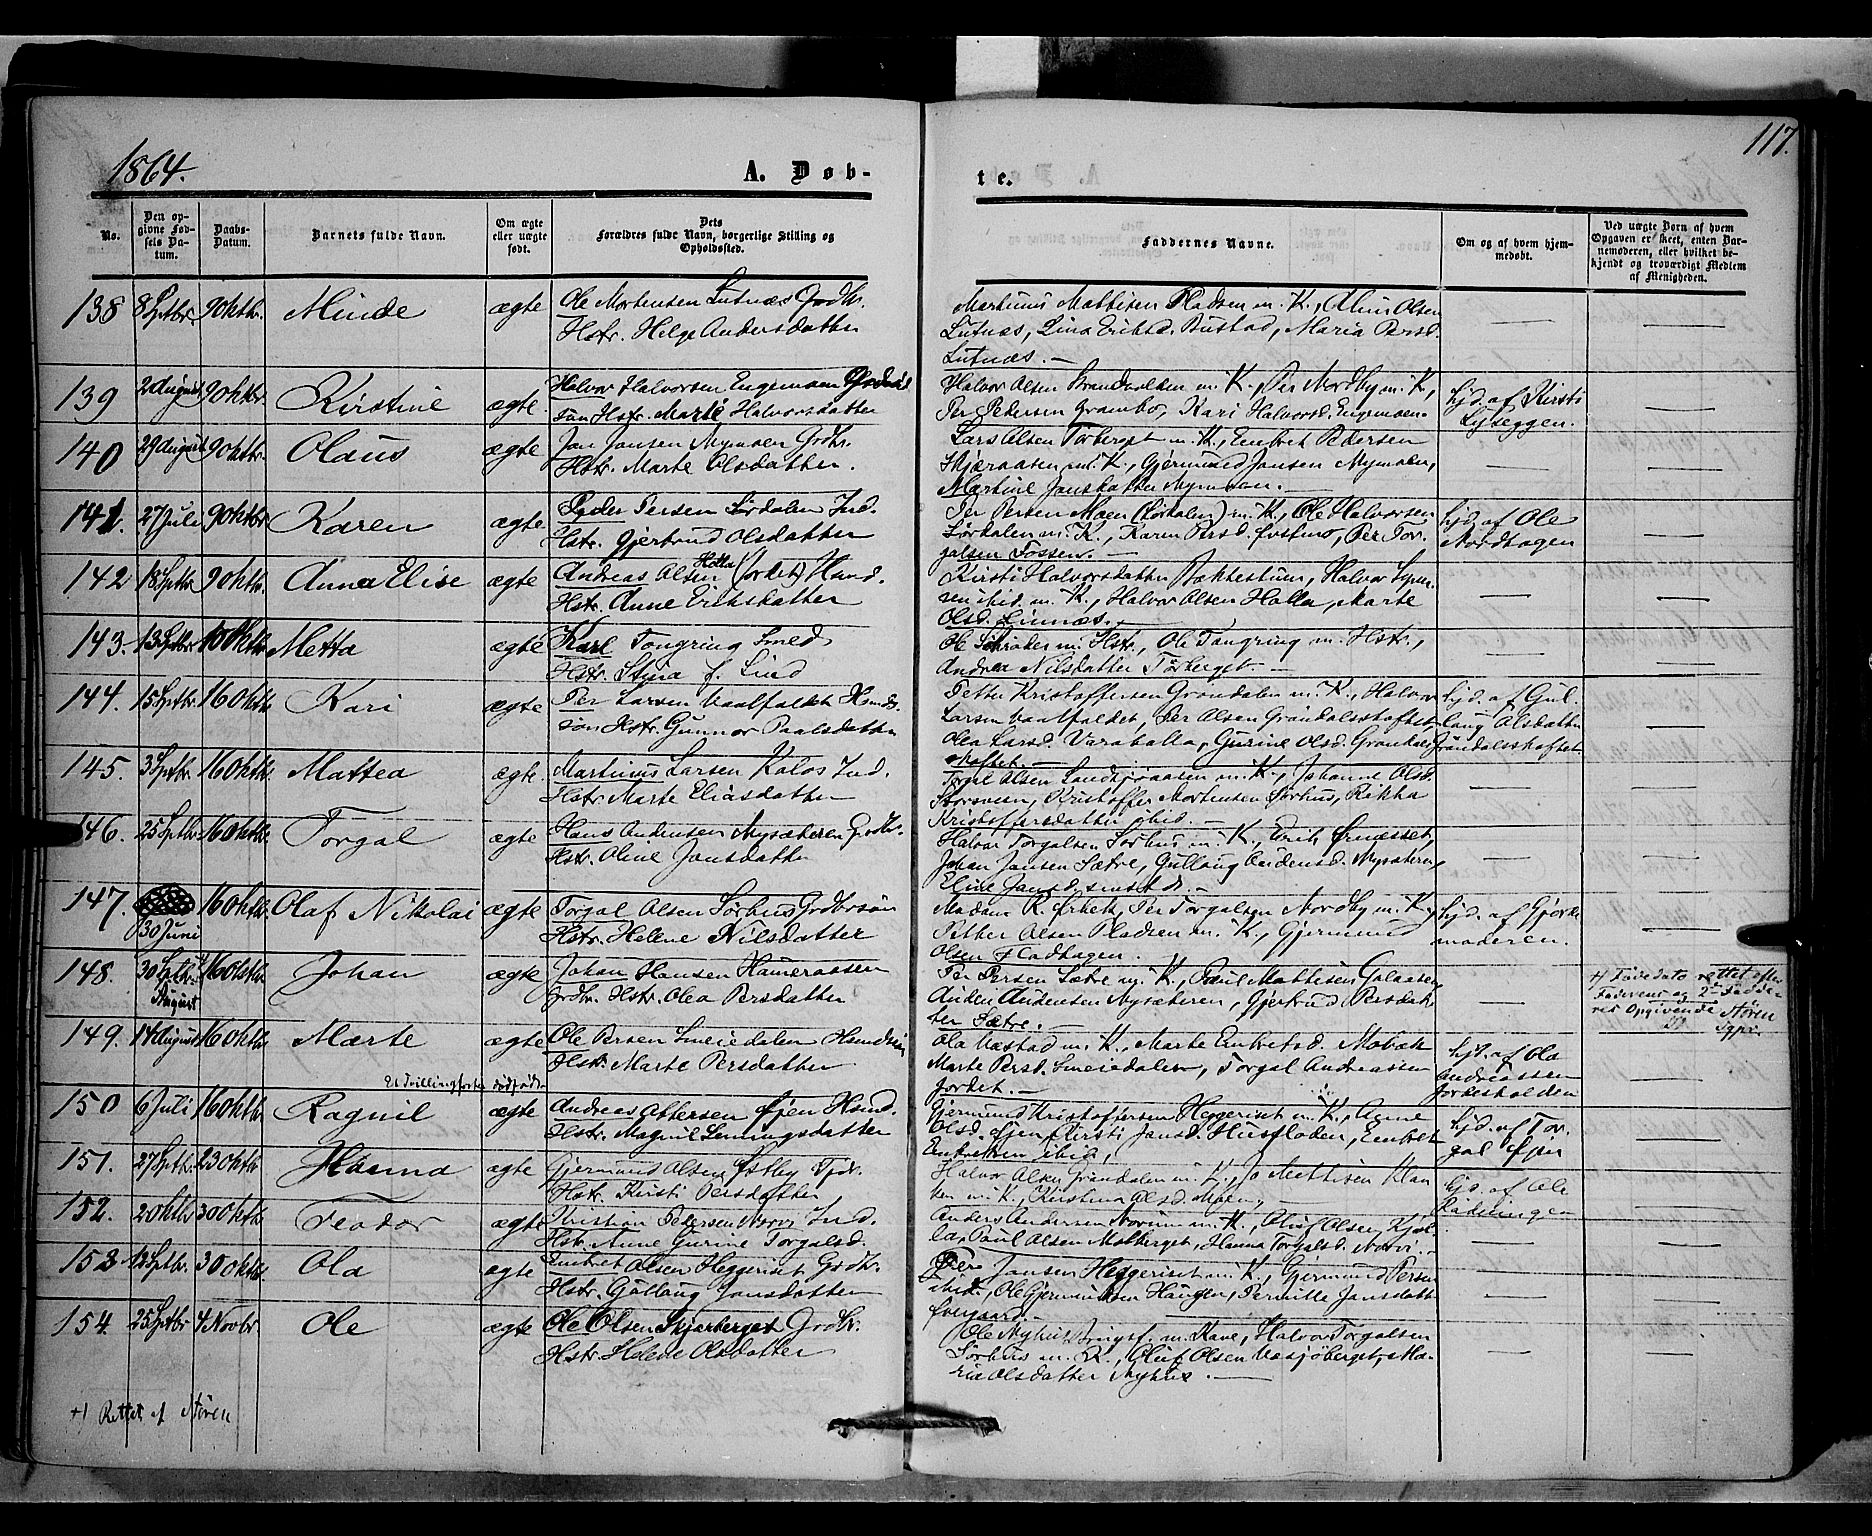 1864.
A. Døb-
te.
117.
No.
Den op-
givne Fød-
sels Da-
tum.
Daabs-
Datum.
Barnets fulde Navn.
Om ægte
eller uægte
født.
Dets
Forældres fulde Navn, borgerlige Stilling og
Opholdssted.
Faddernes Navne.
Om og af hvem hjem-
medøbt.
Ved uægte Børn af hvem
Opgaven er skeet, enten Bar-
nemoderen, eller hvilket be-
kjendt og troværdigt Medlem
af Menigheden.
138 8 Septbr. 9 Oktbr. Minde ægte Ole Mortensen Lutnæs Grdbr.
Hstr. Helge Andersdatter
Martinus Mattisen Pladsen m. K., Olsen
Lutnæs, Lina Eriksd. Bustad, Maria Persd.
Lutnæs. —
139 2 August 9 Oktbr. Kirstine ægte Halvor Halvorsen Engemoen
søn Hstr. Marte Halvorsdatter
Halvor Olsen Brandvolden m. K., Per Nordby m. K,
Per Pedersen Grambo, Kari Halvorsd. Engemoen.
hjd. af Kirsti
Lyseggen.
140 29 August 9 Oktbr. Olaus ægte Jan Jansen Nymoen Grdbr.
Hstr. Marte Olsdatter.
Lars Olsen Torberget m. K., Embret Pedersen
Skjæraasen m. K., Gjermund Jansen Nymoen,
Martine Jansdatter Nymoen. —
141. 27 Juli 9 Oktbr Karen ægte Peder Persen Sørdalen Ind.
Hstr. Gjertrud Olsdatter
Per Persen Moen (Sørdalen) m. K., Ole Halvorsen
Sørdalen m. K., Karen Persd. Øvstmo, Per Tor-
galsen Fossen. —
hjd. af Ole
Nordhagen
142 18 Septbr. 9 Oktbr. Anna Elise ægte Andreas Olsen Holla (Jordet) Hand.
Hstr. Anne Eriksdatter
Kristi Halvorsdatter Bækkestuen, Halvor
ibid. m. K., Halvor Olsen Holla, Marte
Olsd. Linnæs. —
143. 13 Septbr 10 Oktbr Metta ægte Karl Tongring Smed
Hstr. Stina f. Lind
Ole Schrøder m. Hstr., Ole Tangring m. Hstr.,
Andrea Nilsdatter Torberget —
144. 15 Septbr. 16 Oktbr. Kari ægte Per Larsen Vaalfaldet Hmds-
søn Hstr. Gunnor Paalsdatter
Petter Kristoffersen Grøndalen m. K., Halvor
Larsen Vaalfaldet, Per Olsen Grøndalsskoftet
Olea Larsd. Varaholla, Gurine Olsd. Grøndals-
skoftet. —
hjd. af Gul-
laug Olsdatter
Grøndalsskoftet
145. 3 Septbr. 16 Oktbr. Mattea ægte. Martinus Larsen Kolos Ind.
Hstr. Marte Eliasdatter
Torgal Olsen Landsjøaasen m. K., Johanne Olsd.
Storsveen, Kristoffer Mortensen Sørhus, Rikka
Kristoffersdatter ibid. —
146. 25 Septbr 16 Oktbr. Torgal ægte Hans Andersen Nysæteren Grdbr.
Hstr. Oline Jansdatter
Halvor Torgalsen Sørhus m. K., Erik Ørnæsset,
Johan Jansen Sætre, Gullaug Audensd. Nysæteren,
Eline Jansd. —
147. 30 Juni 16 Oktbr Olaf Nikolai ægte Torgal Olsen Sørhus Grdbrsøn
Hstr. Helene Nilsdatter
Madam R. Ørbek, Per Torgalsen Nordby m. K.,
Petter Olsen Pladsen m. K., Gjermund
Olsen Fladhagen.
hjd. af Gjorde-
moderen.
148. 30 Septbr. August 16 Oktbr Johan ægte Johan Hansen Hameraasen
Grdbr. Hstr. Olea Persdatter
Per Persen Sætre m. K., Paul Mattisen Galaasen
Auden Audensen Nysæteren, Gjertrud Persdat-
ter Sætre. —
+/ Fødedato rettet efter
Faderens og 2de Fadde-
res Opgivende Støren
Sgpr.
149. 14 August 16 Oktbr. Marte ægte Ole Persen Smeiedalen Hmdsøn
Hstr. Marte Persdatter
Ola Væstad m. K., Marte Embretsd. Mobæk
Marte Persd. Smeiedalen, Torgal Andreassen
Jordet. —
hjd. af Ola
Andreassen
Jordetsholden
Et Tvillingfoster dødfødt
150 6 Juli 16 Oktbr Ragnil ægte Andreas Ottersen Øjen Hsmd.
Hstr. Magnil Lenningsdatter
Gjermund Kristoffersen Heggeriset m. K., Agne
Olsd. Øjen, Kirsti Jansd. Husfloden, Embret
Embretsen ibid,
hjd. af Tor-
gal Øjen
151. 27 Septbr. 23 Oktbr Hanna ægte Gjermund Olsen Østby Tjdr.
Hstr. Kirsti Persdatter
Halvor Olsen Grøndalen m. K., Jo Mattisen Klan-
ken m. K., Kristina Olsd. Moen, —
hjd. af Ole
152. 2 Oktbr 30 Oktbr. Teodor ægte Kristian Pedersen Norvi Ind.
Hstr. Anne Gurine Torgalsd.
Anders Andersen Norum m. K., Oluf Olsen Kjøl-
la, Paul Olsen Molberget, Hanna Torgalsd. Norvi. —
153 13 Septbr. 30 Oktbr Ola ægte Embret Olsen Heggeriset Grdbr.
Hstr. Gullaug Jansdatter
Per Jansen Heggeriset m. K., Gjermund Persen
ibid., Ole Gjermundsen Haugen, Pernille Jansdatt
Øvergaard. —
154. 25 Septbr 4 Novbr. Ole ægte Ole Olsen Skjærberget Grdbr.
Hstr. Helene Olsdatter
Ole Nyhus Lensf. m. Kone, Halvor Torgalsen
Sørhus m. K., Oluf Olsen Vasjøberget, Ma-
ria Olsdatter Nyhus. —
+/ Rettet af Støren